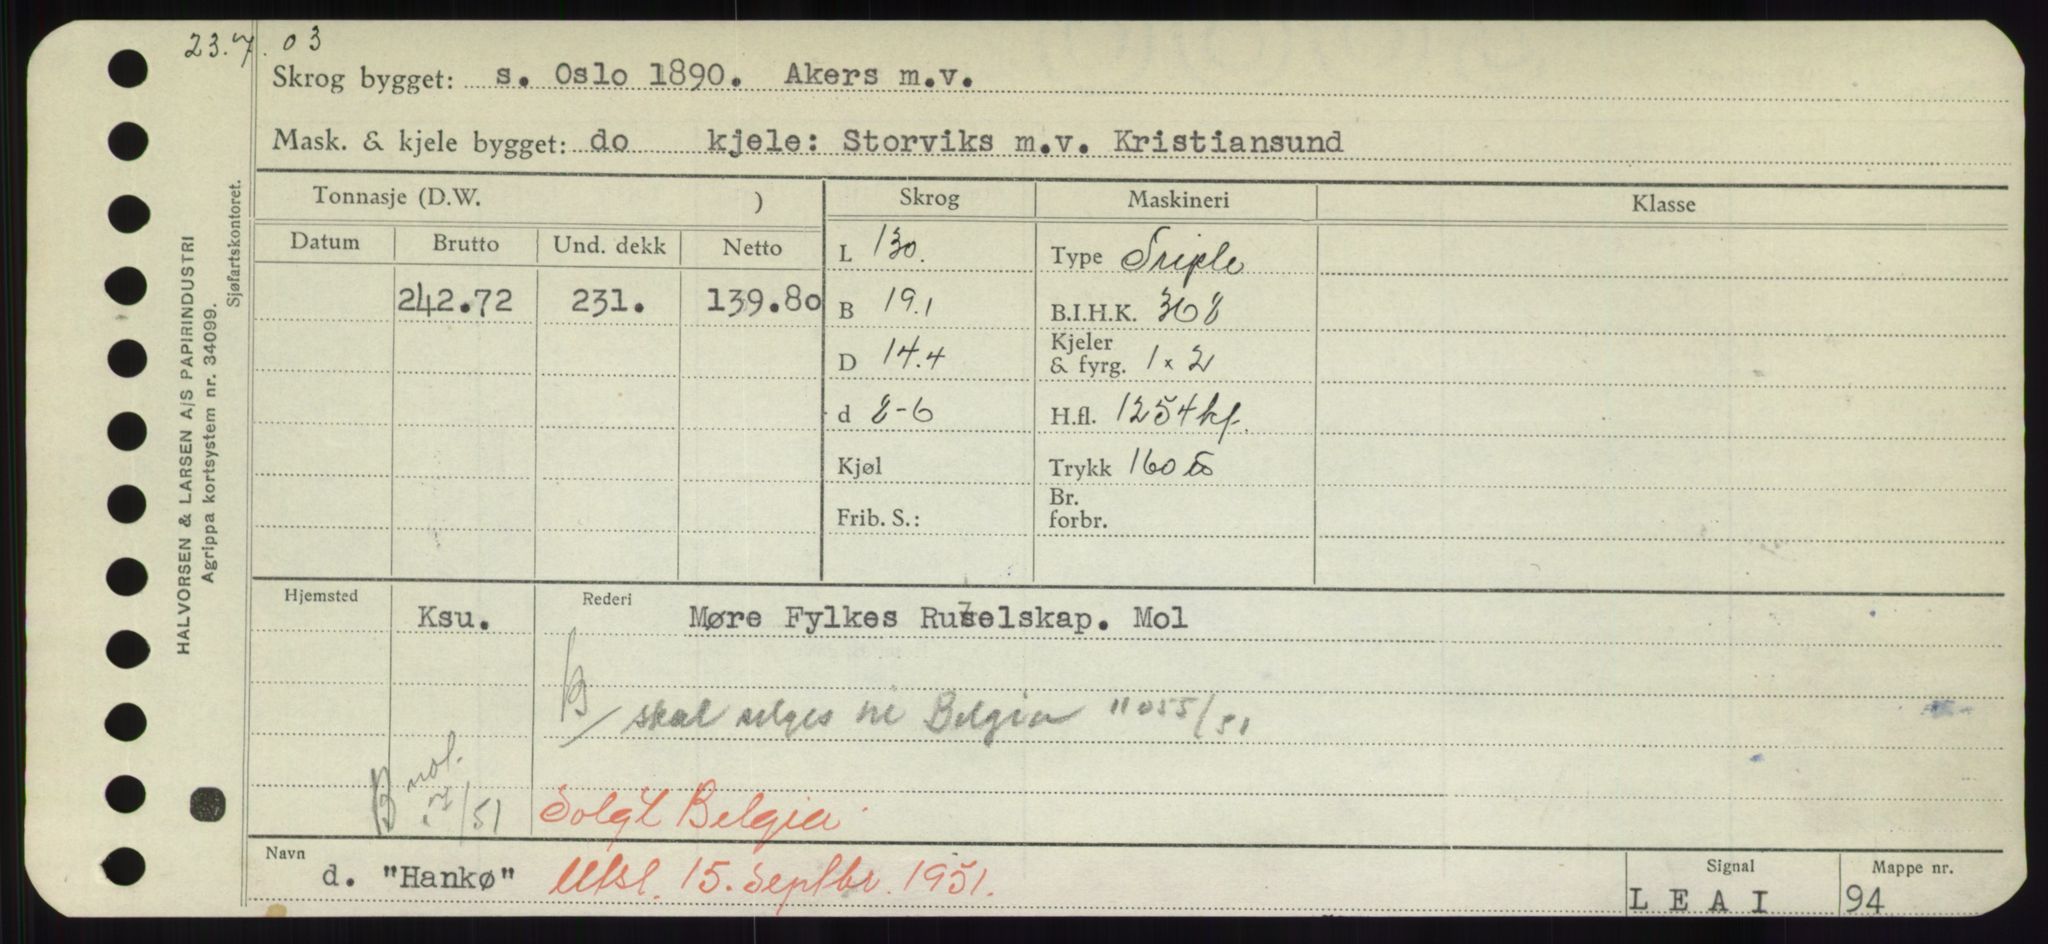 23.7.03
Skrog bygget: s. Oslo 1890. Akers m.v.
Mask. & kjele bygget: do kjele: Storviks m.v. Kristiansund
Tonnasje (D.W. )
Skrog
Maskineri
Klasse
Datum
Brutto
Und. dekk
Netto
242.72
231.
139.80
L 130.
B 19.1
D 14.4
d 8-6
Kjøl
Frib. S.:
Type Triple
B.I.H.K. 368
Kjeler
& fyrg. 1 x 2
H.fl. 1254 kf.
Trykk 160
Br.
forbr.
Hjemsted
Ksu.
Rederi
Møre Fylkes Ruselskap. Mol
skal selges til Belgia "055/51
B mol. /51
Solgt Belgia.
Navn
d. "Hankø"
Utsl. 15. Septbr. 1951.
Signal
LEAI
Mappe nr.
94
HALVORSEN & LARSEN A/S PAPIRINDUSTRI
Agrippa kortsystem nr. 34099.
Sjøfartskontoret.